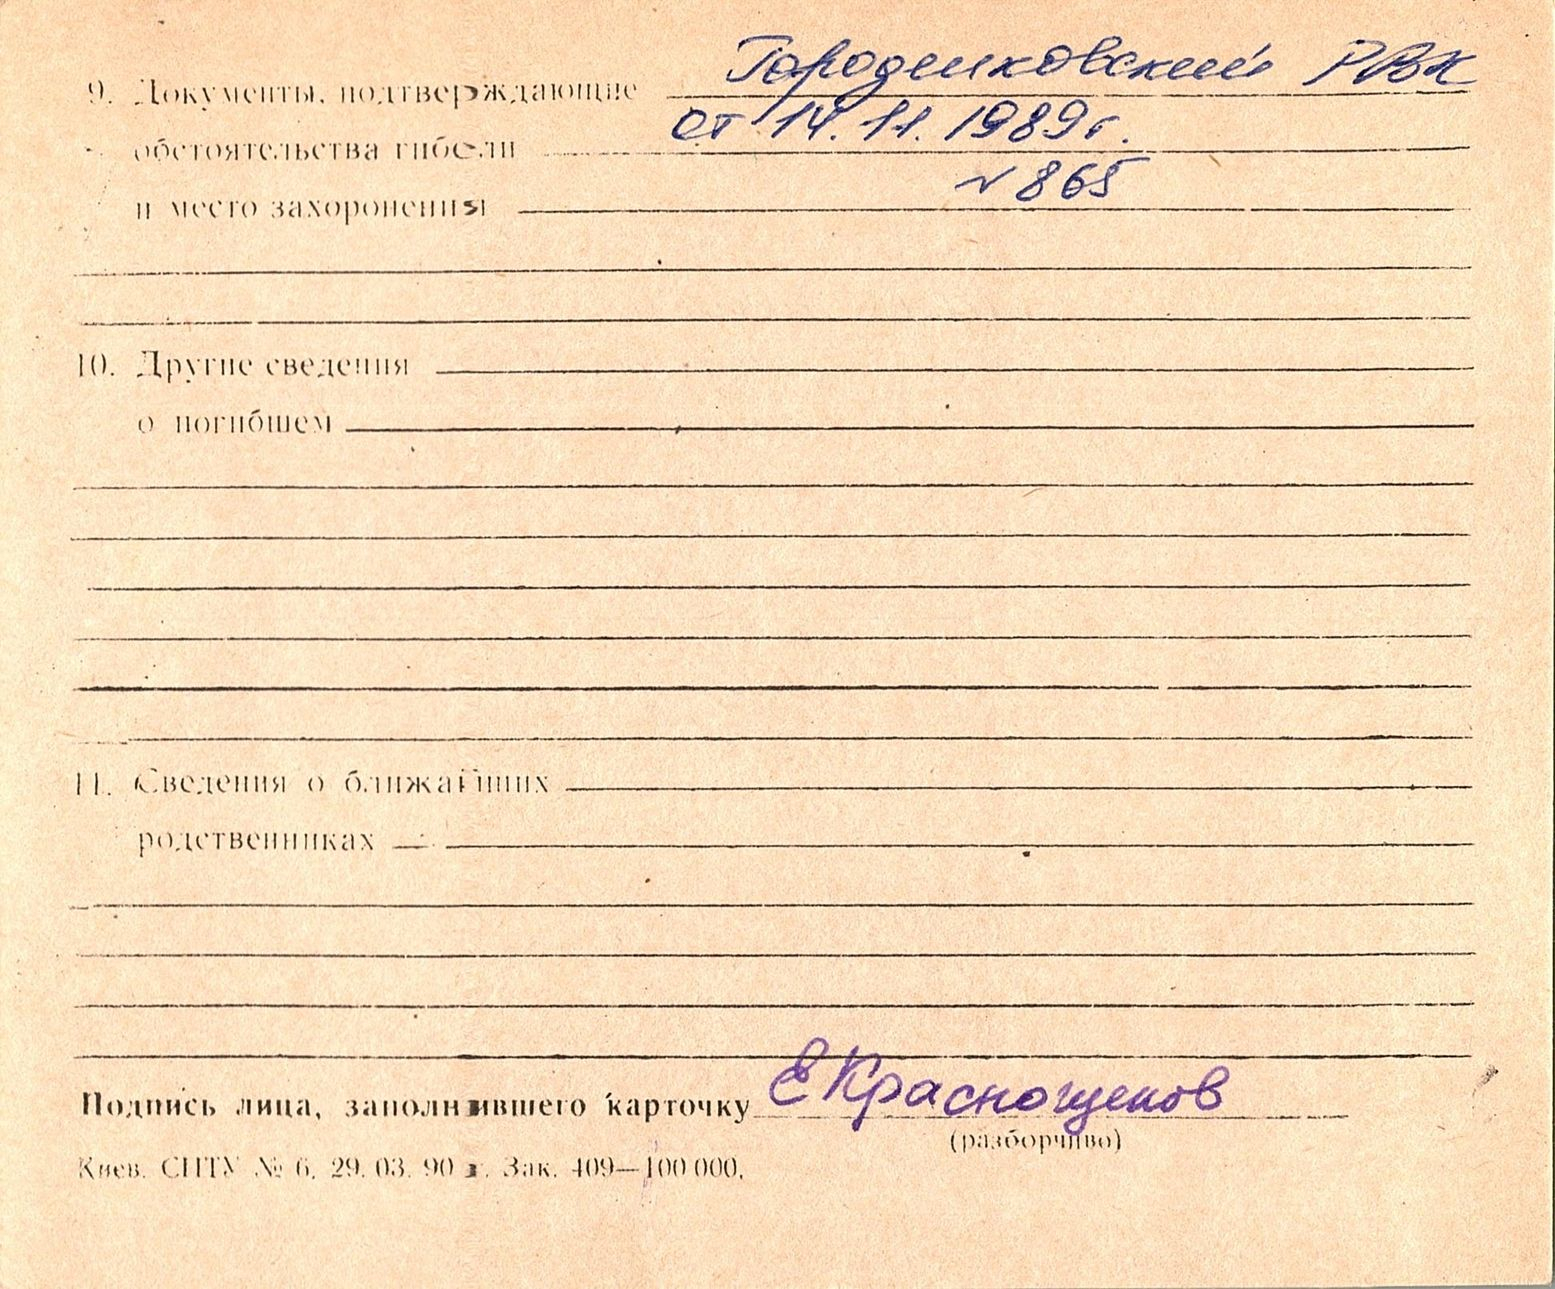 9. Документы, подтверждающие Городенковский РВК
обстоятельства гибели от 14.11.1989г.
и место захоронения № 865
10. Другие сведения
о погибшем
11. Сведения о ближайших
родственниках
Подпись лица, заполнившего карточку Е Краснощеков
(разборчиво)
Киев. СПТУ № 6. 29. 03. 90 г. Зак. 409—100 000.